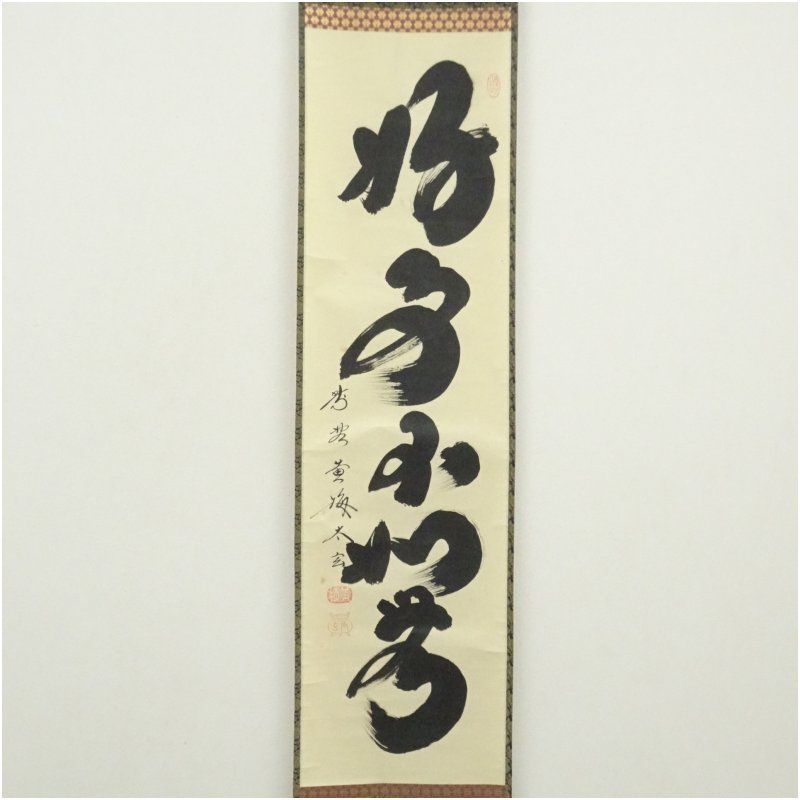 好事不如無
紫野 黄梅太玄